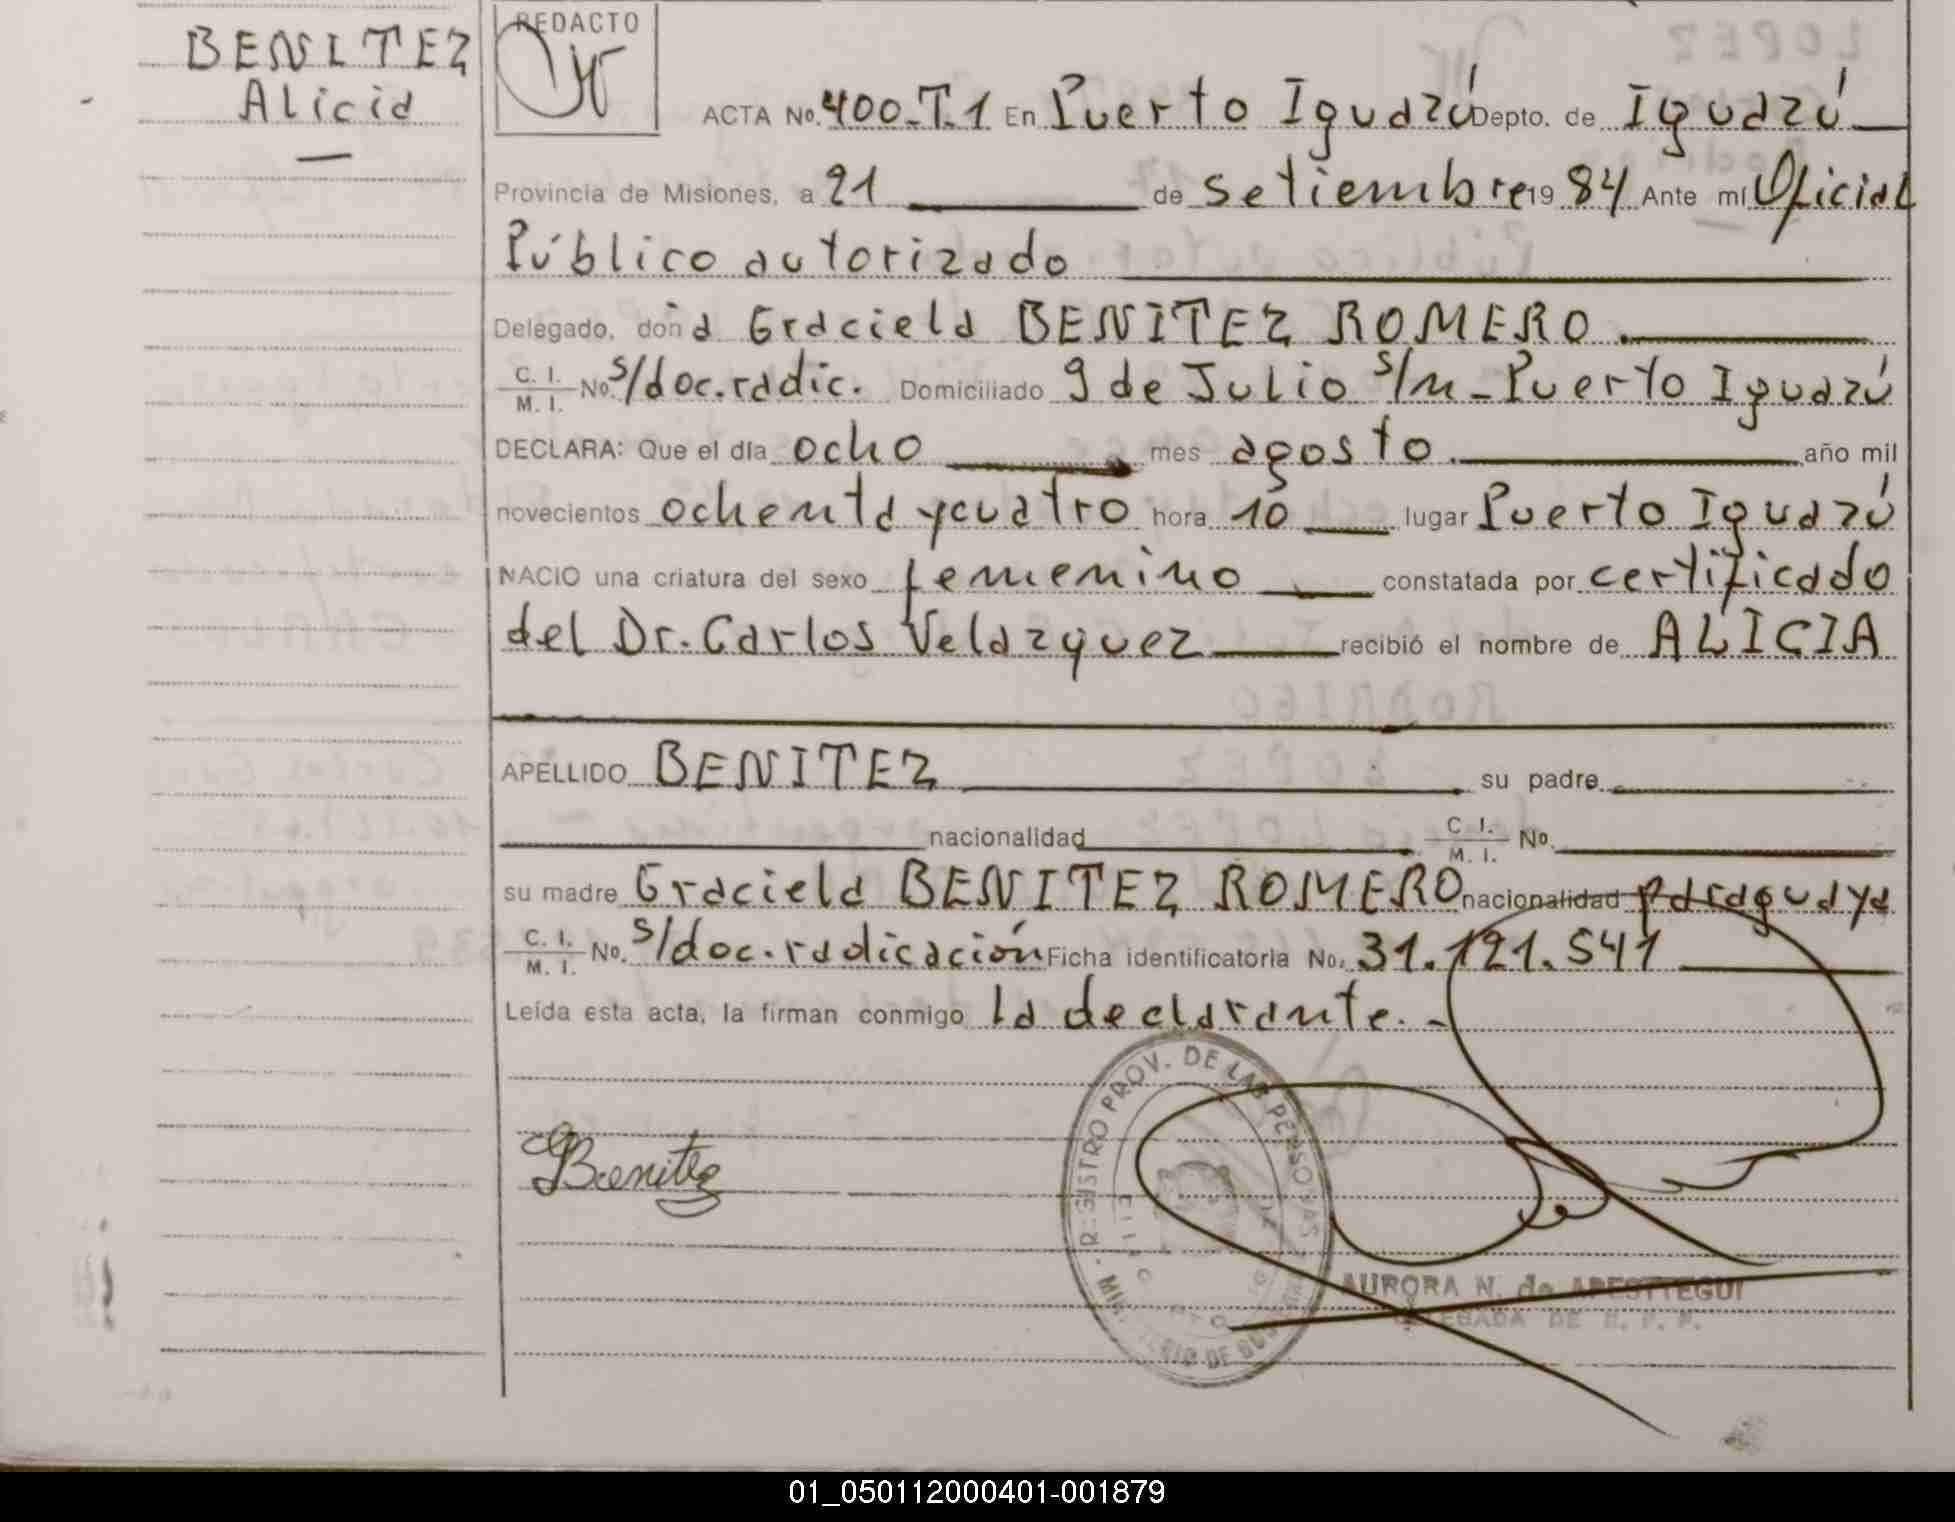 BENITEZ
Alicia
REDACTO
ACTA No. 400-T.1 En Puerto Iguazú Depto. de Iguazú
Provincia de Misiones, a 21 de setiembre 19 84 Ante mí Oficial
Público autorizado
Delegado, don a Graciela BENITEZ ROMERO.
C. I. M. I. No. s/doc.radic. Domiciliado 9 de Julio s/n - Puerto Iguazú
DECLARA: Que el día ocho mes agosto. año mil
novecientos ochenta y cuatro hora 10 lugar Puerto Iguazú
NACIO una criatura del sexo femenino constatada por certificado
del Dr. Carlos Velazquez recibió el nombre de ALICIA
APELLIDO BENITEZ su padre
nacionalidad C. I. M. I. No.
su madre Graciela BENITEZ ROMERO nacionalidad paraguaya
C. I. M. I. No. s/doc. radicación Ficha identificatoria No. 31.121.541
Leída esta acta, la firman conmigo la declarante. -
REGISTRO PROV. DE LAS PERSONAS
GBenitez
AURORA N. de APESTTEGUI
DELEGADA DE R. P. P.
01_050112000401-001879